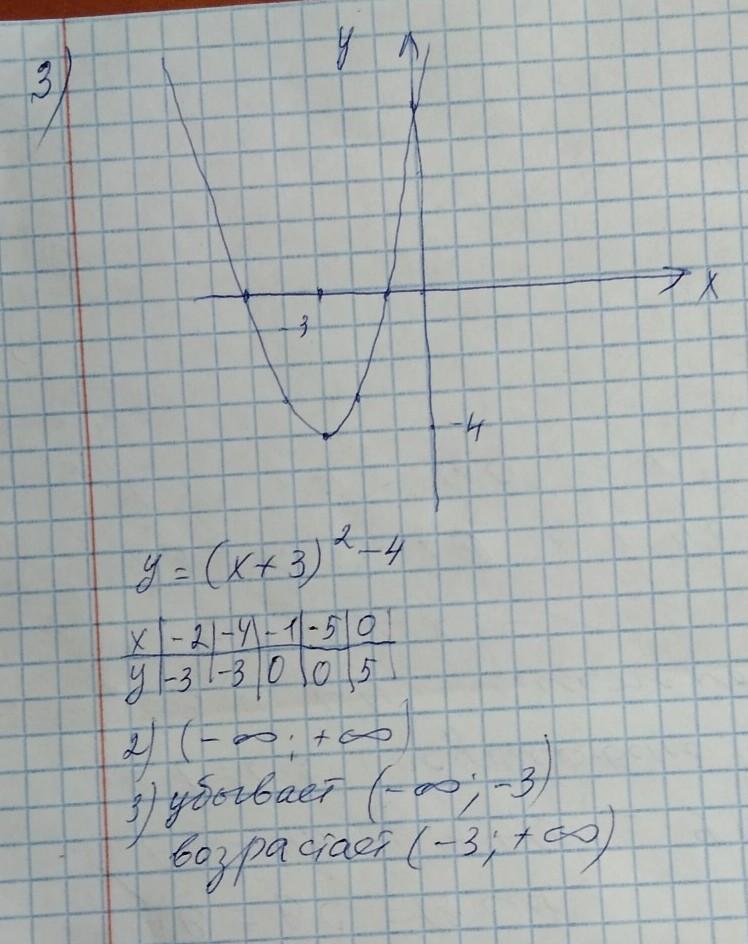 3)
y
x
-3
-4
y = (x+3)² -4
x | -2 | -4 | -1 | -5 | 0
y | -3 | -3 | 0 | 0 | 5
2) (-∞; +∞)
3) убывает (-∞; -3)
возрастает (-3; +∞)